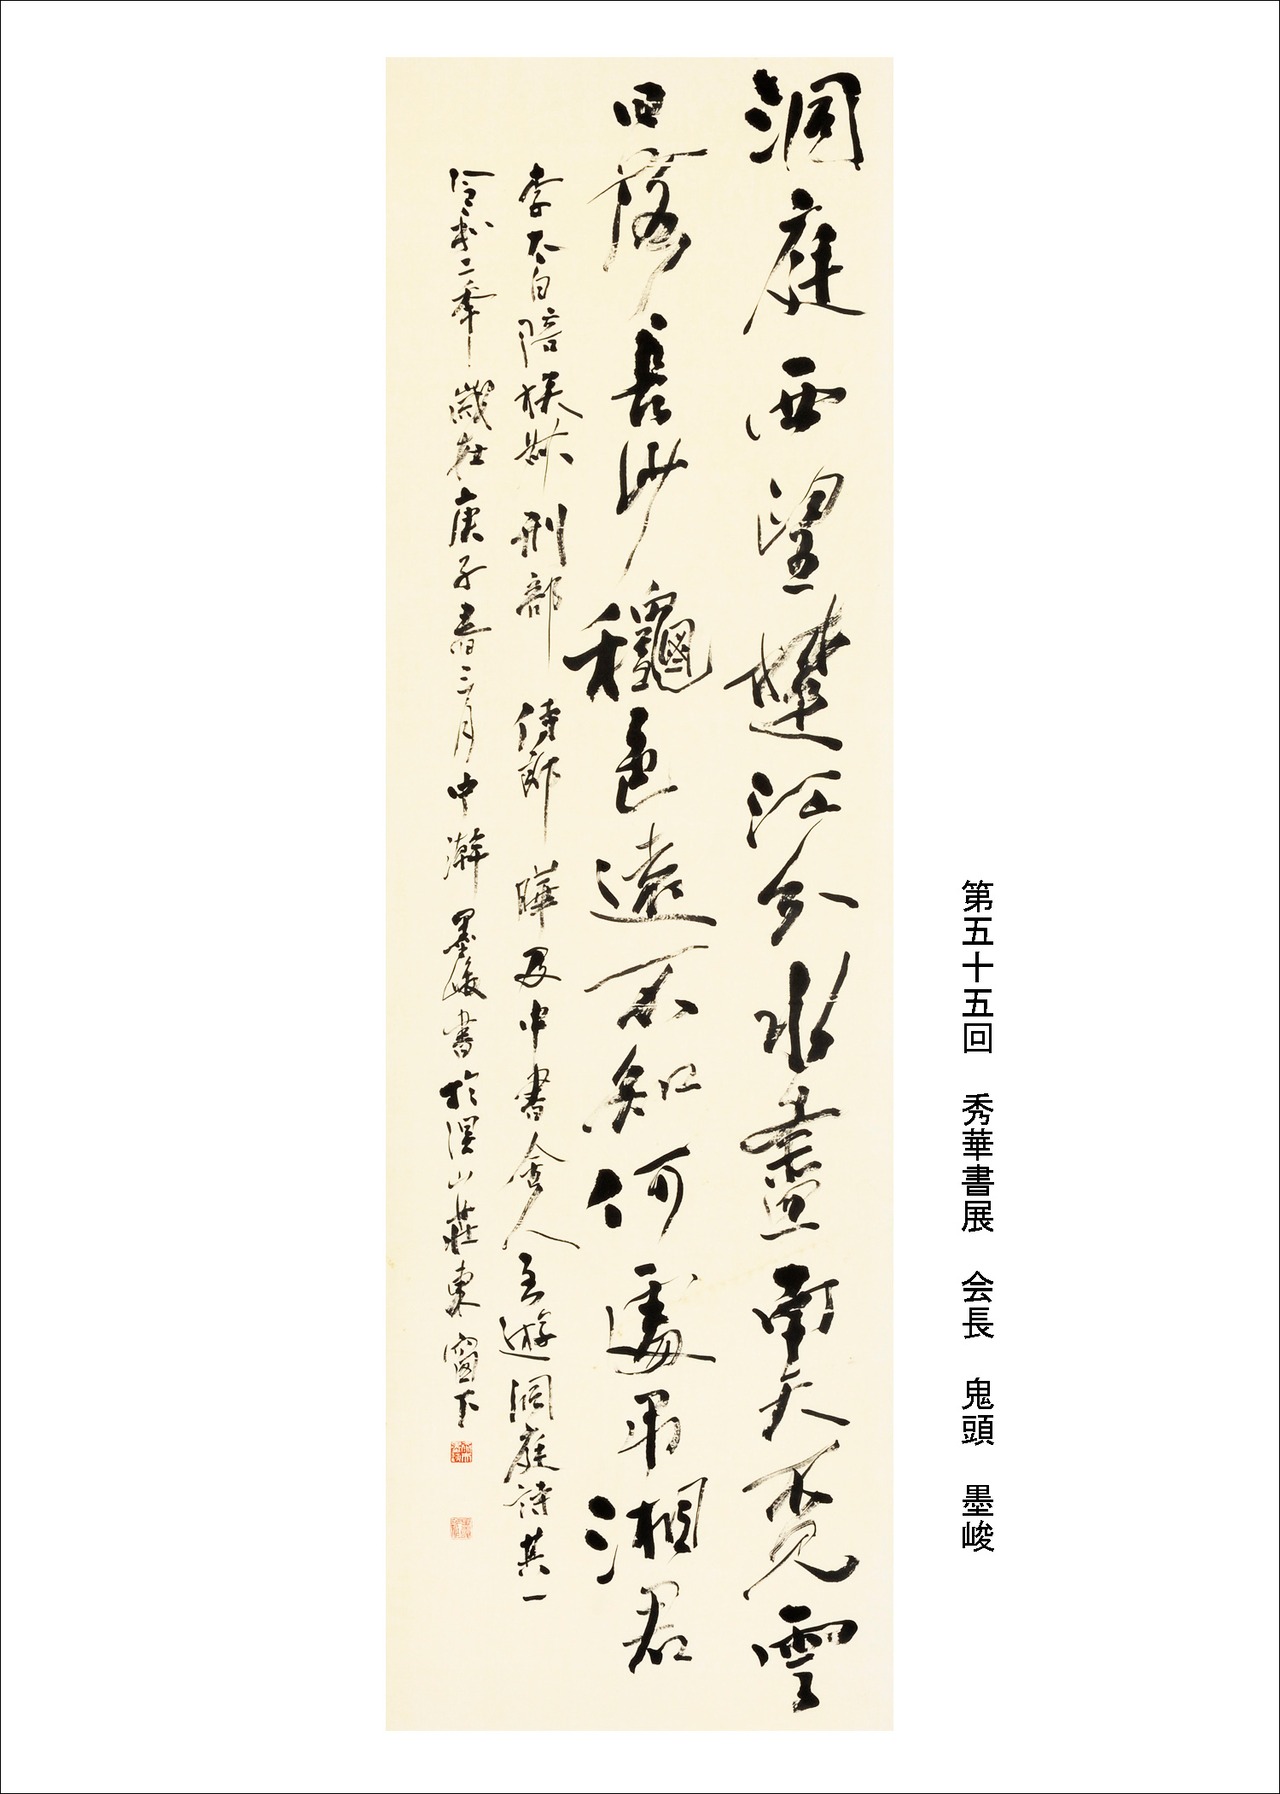 第五十五回　秀華書展　会長　鬼頭　墨峻
洞庭西望楚江分水盡南天不見雲
日落長沙龝色遠不知何處弔湘君
李太白陪族叔刑部侍郎曄及中書舎人至遊洞庭詩其一
令和二年歳在庚子春三月中澣墨峻書於渓山莊東窗下